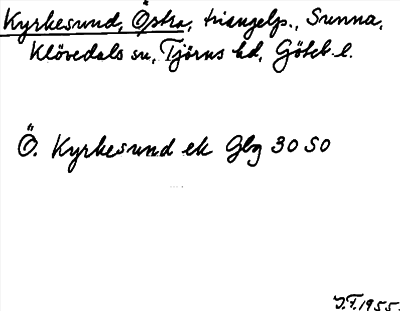 Kyrkesund, Östra, triangelp., Sunna,
Klövedals sn, Tjörns hd, Göteb. l.
Ö. Kyrkesund ek Gbg 30 SO
J.F. 1955.